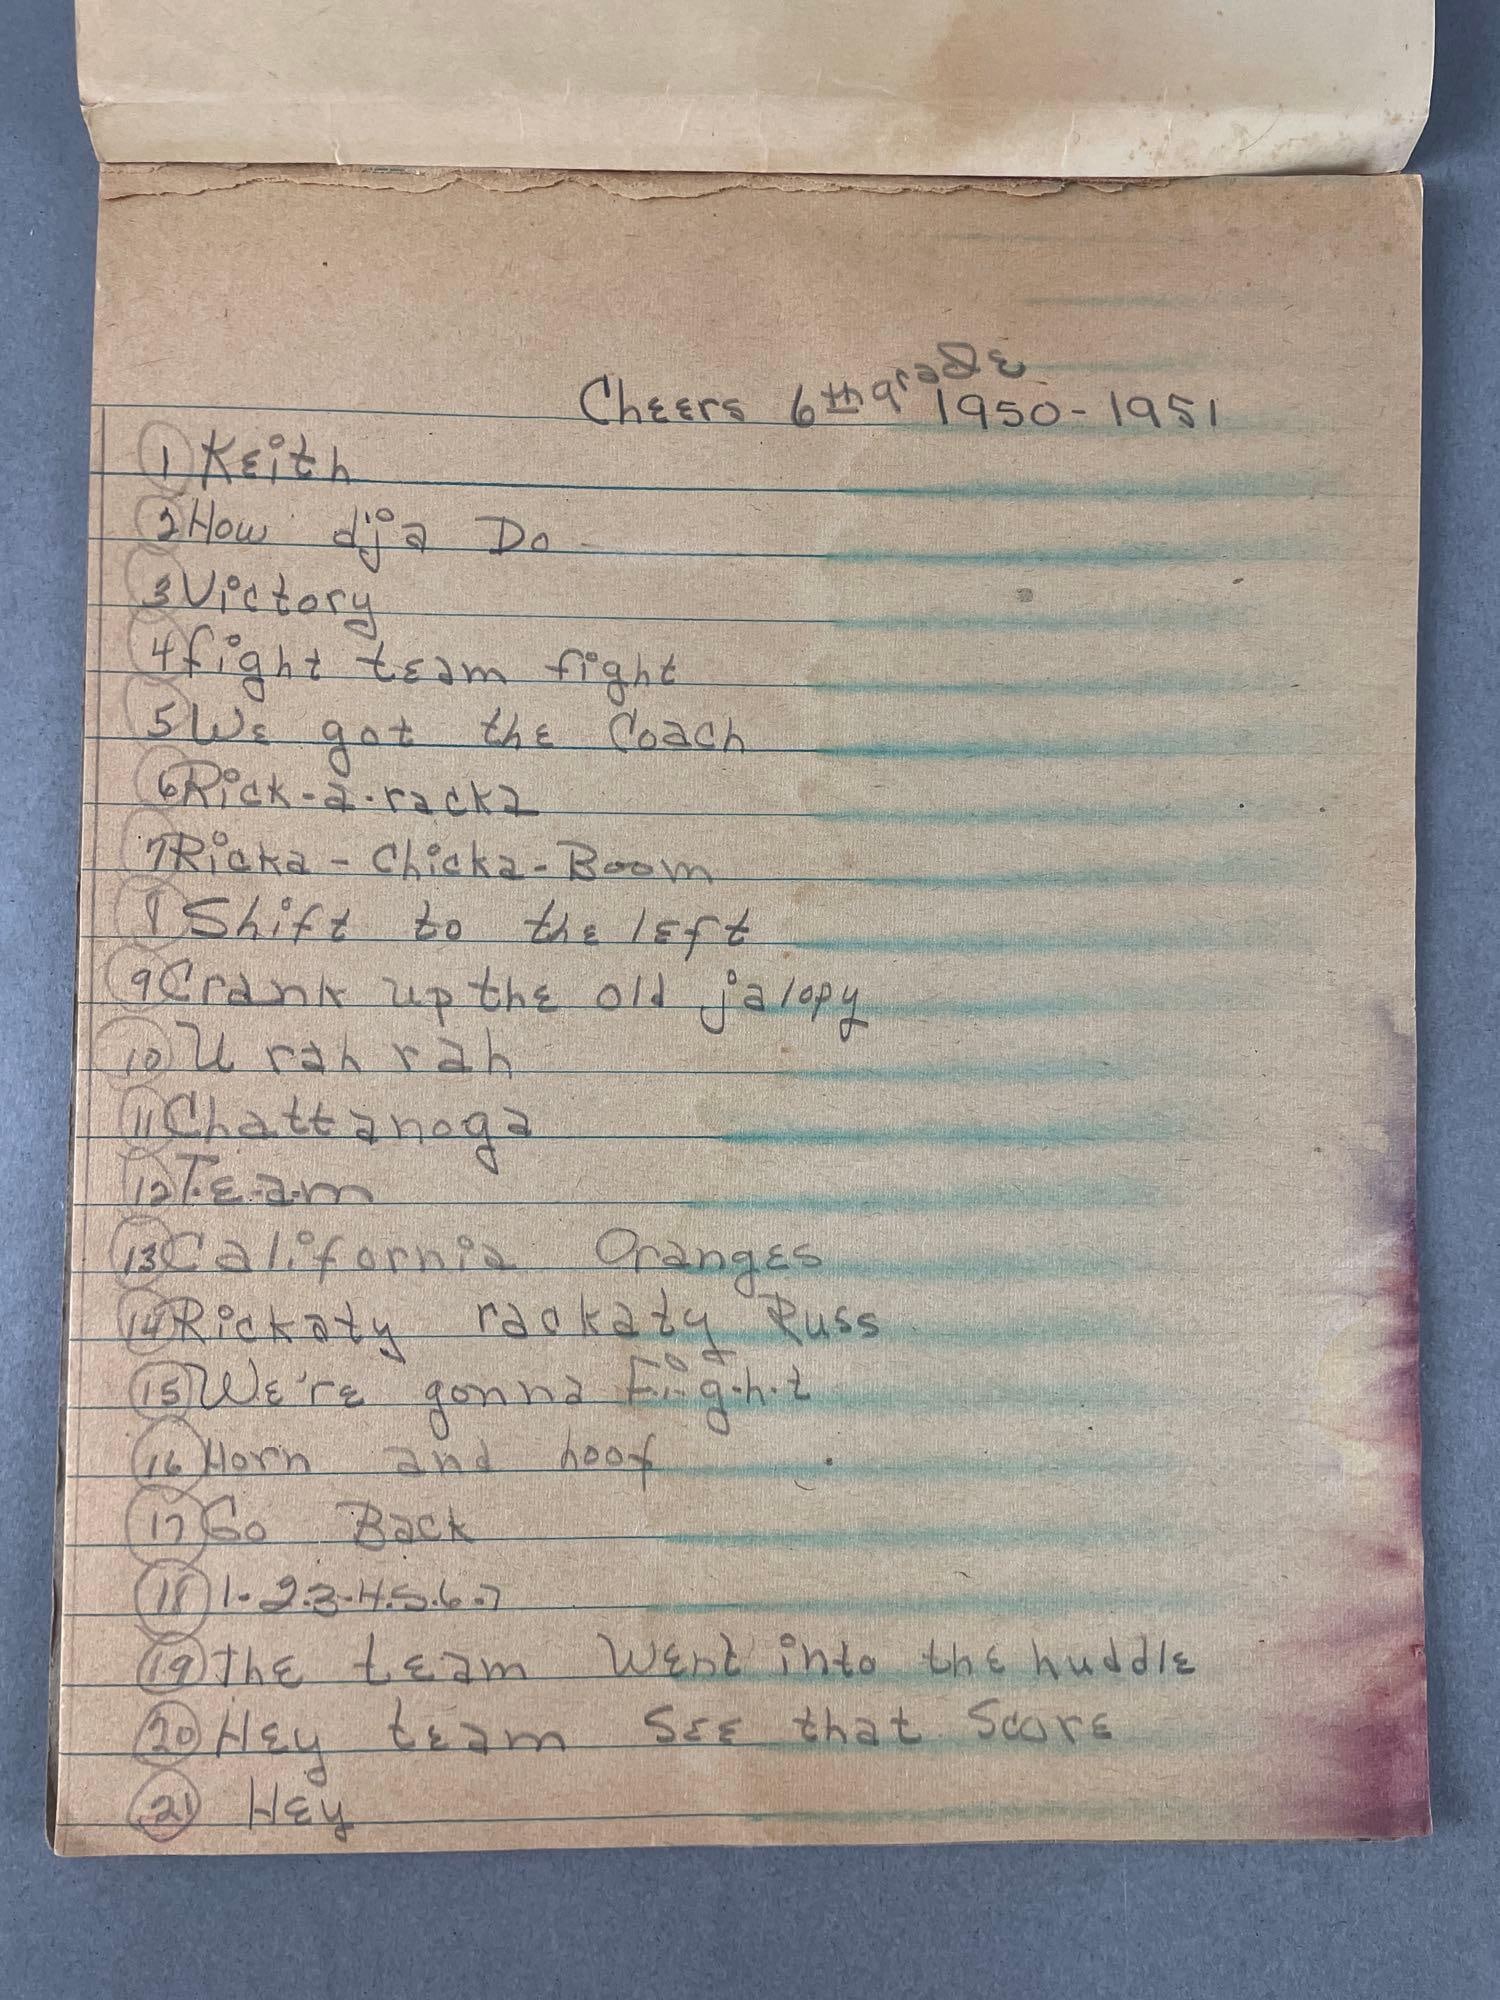 Cheers 6th grade 1950-1951
1 Keith
2 How dja Do
3 Victory
4 fight team fight
5 We got the Coach
6 Rick-a-racka
7 Ricka-Chicka-Boom
8 Shift to the left
9 Crank up the old jalopy
10 U rah rah
11 Chattanoga
12 T.E-a-m
13 California Oranges
14 Rickaty rackaty Russ
15 We're gonna F-i-g-h-t
16 Horn and hoof
17 Go Back
18 1-2-3-4-5-6-7
19 The team Went into the huddle
20 Hey team See that Score
21 Hey